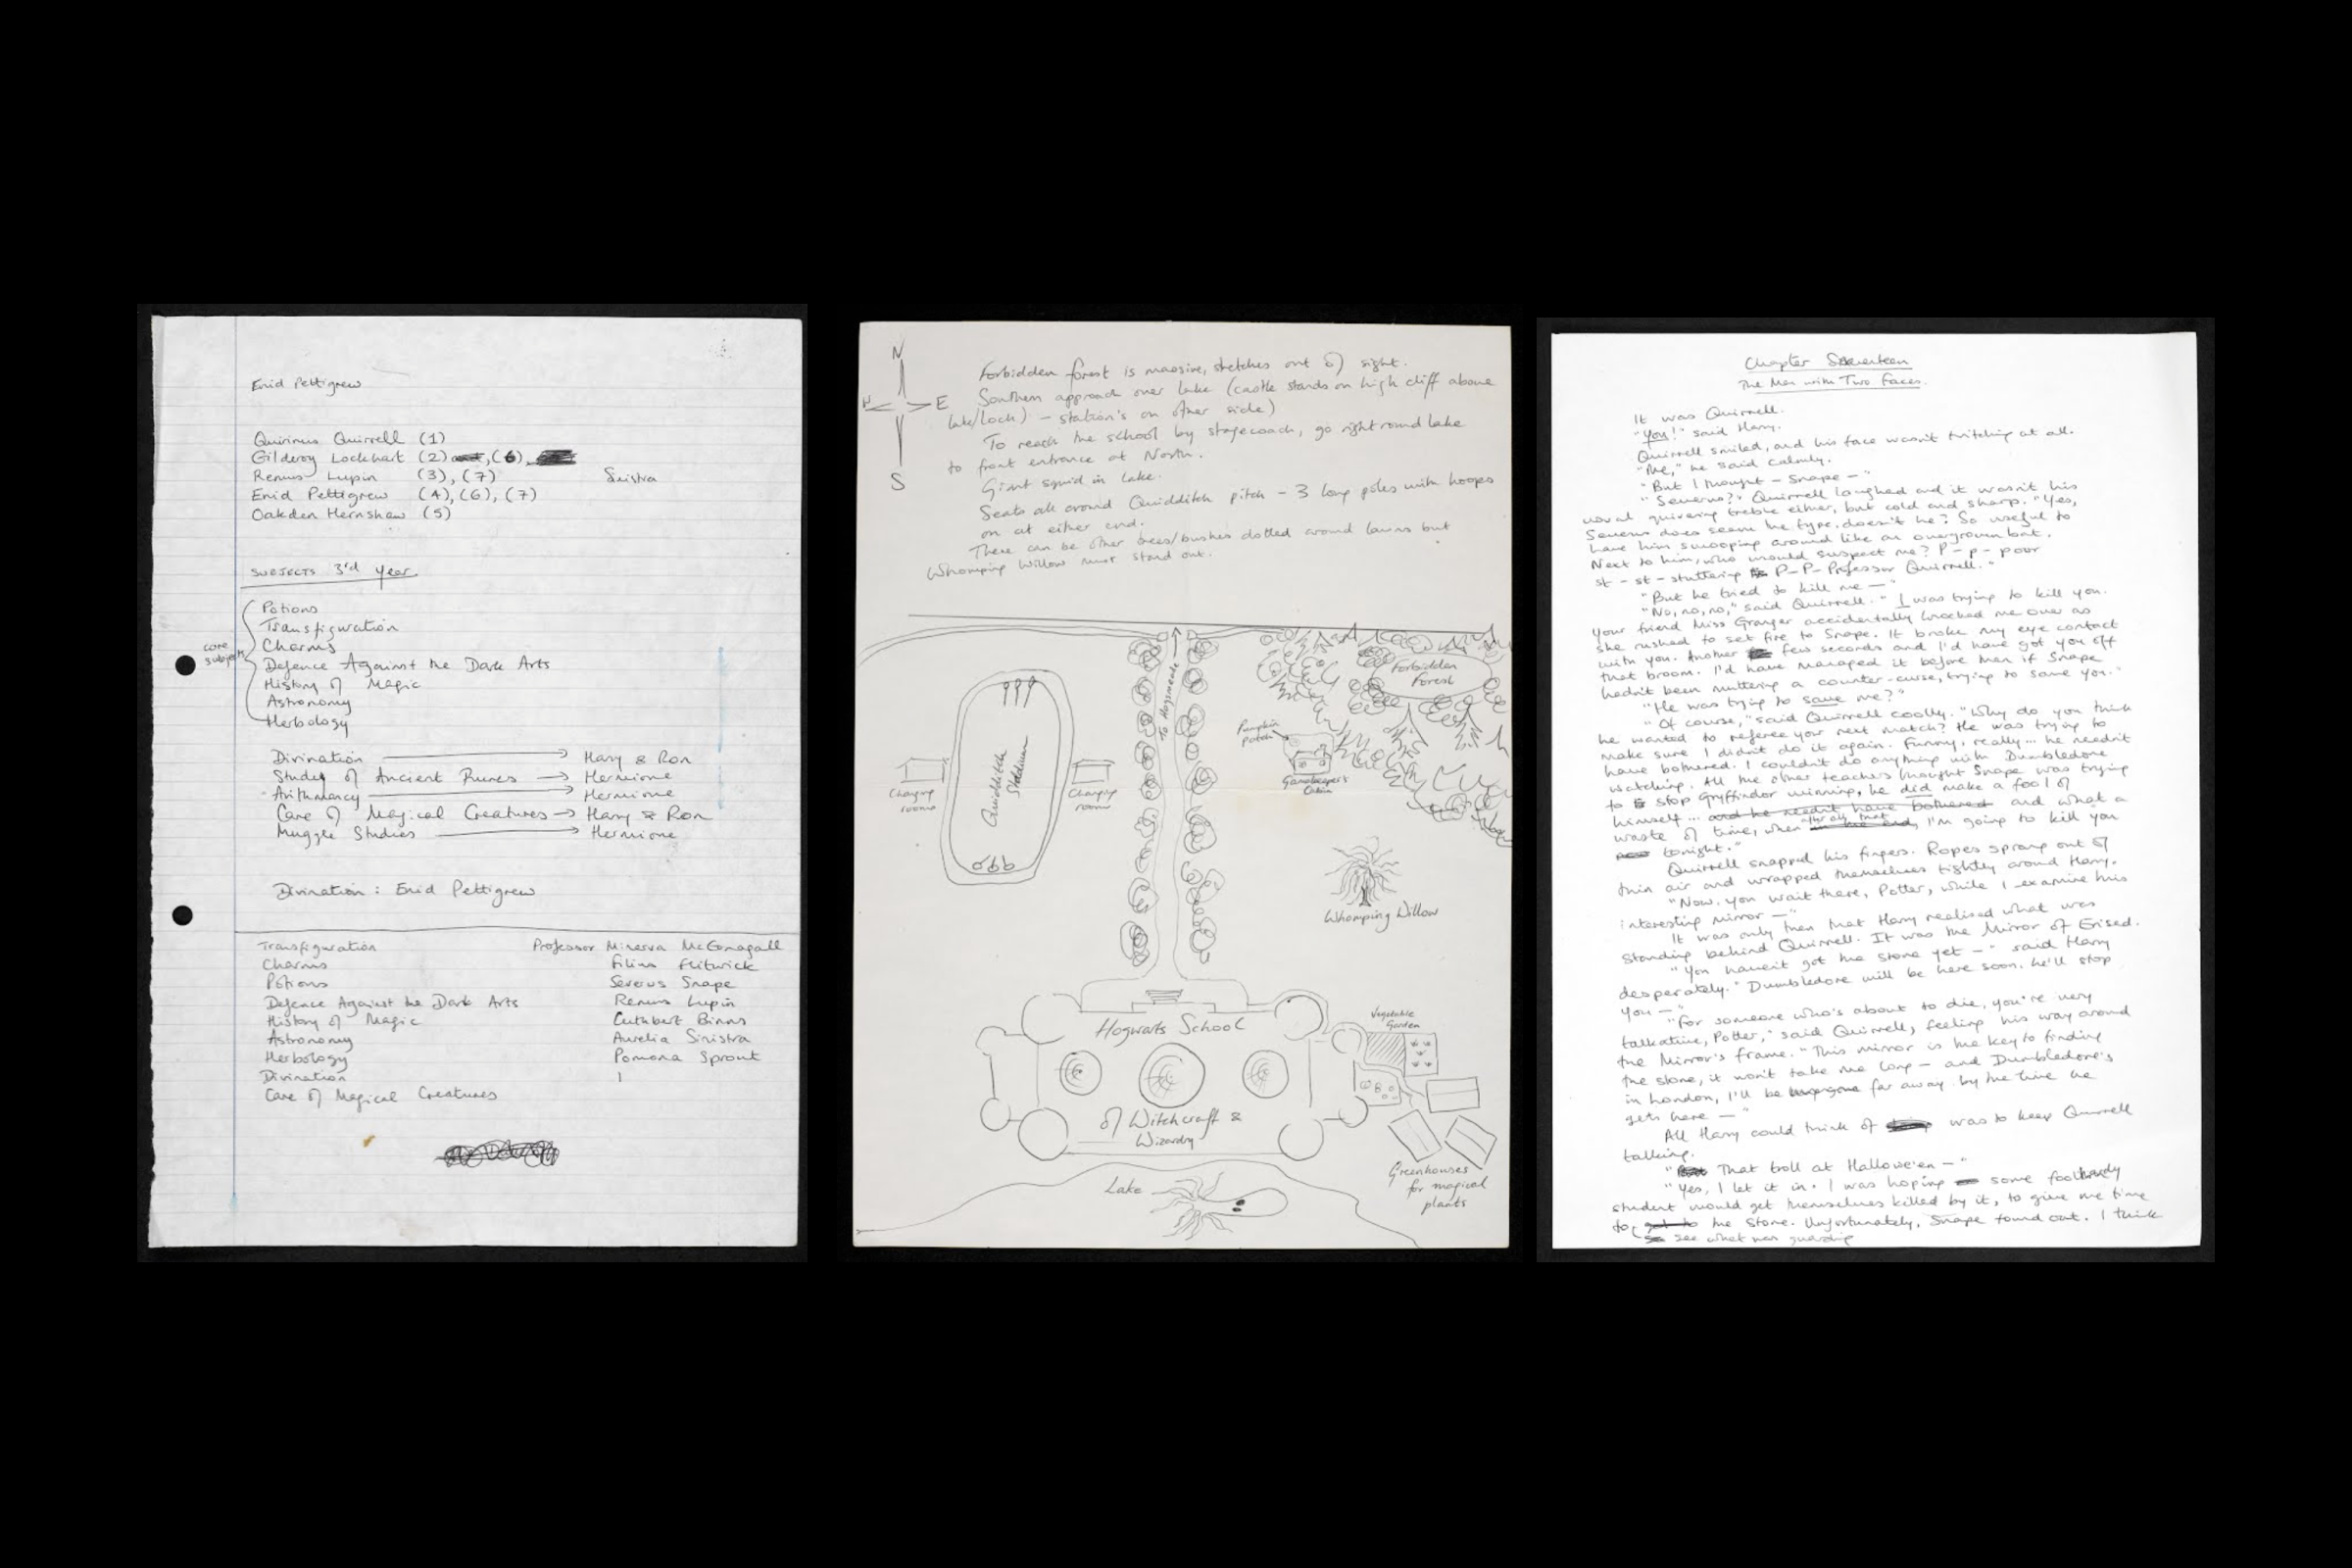 Enid Pettigrew
Quirinus Quirrell (1)
Gilderoy Lockhart (2) , (6),
Remus Lupin (3), (7) Sinistra
Enid Pettigrew (4), (6), (7)
Oakden Hernshaw (5)
SUBJECTS 3rd Year
core subjects
Potions
Transfiguration
Charms
Defence Against the Dark Arts
History of Magic
Astronomy
Herbology
Divination → Harry & Ron
Study of Ancient Runes → Hermione
Arithmancy → Hermione
Care of Magical Creatures → Harry & Ron
Muggle Studies → Hermione
Divination : Enid Pettigrew
Transfiguration Professor Minerva McGonagall
Charms Filius Flitwick
Potions Severus Snape
Defence Against the Dark Arts Remus Lupin
History of Magic Cuthbert Binns
Astronomy Aurelia Sinistra
Herbology Pomona Sprout
Divination
Care of Magical Creatures
N
W E
S
Forbidden forest is massive, stretches out of sight.
Southern approach over lake (castle stands on high cliff above
lake/loch) – station's on other side)
To reach the school by stagecoach, go right round lake
to front entrance at North.
Giant squid in lake.
Seats all around Quidditch pitch – 3 long poles with hoops
on at either end.
There can be other trees/bushes dotted around lawns but
Whomping Willow must stand out.
To Hogsmeade
Forbidden
Forest
Pumpkin
patch
Gamekeeper's
Cabin
Changing
rooms
Quidditch
Stadium
Changing
rooms
Whomping Willow
Hogwarts School
of Witchcraft &
Wizardry
Vegetable
Garden
Greenhouses
for magical
plants
Lake
Chapter Seventeen
The Man with Two Faces.
It was Quirrell.
"You!" said Harry.
Quirrell smiled, and his face wasn't twitching at all.
"Me," he said calmly.
"But I thought – Snape – "
"Severus?" Quirrell laughed and it wasn't his
usual quivering treble either, but cold and sharp. "Yes,
Severus does seem the type, doesn't he? So useful to
have him swooping around like an overgrown bat.
Next to him, who would suspect me? P – p – poor
st – st – stuttering P – P – Professor Quirrell."
"But he tried to kill me – "
"No, no, no," said Quirrell. "I was trying to kill you.
Your friend Miss Granger accidentally knocked me over as
she rushed to set fire to Snape. It broke my eye contact
with you. Another few seconds and I'd have got you off
that broom. I'd have managed it before then if Snape
hadn't been muttering a counter-curse, trying to save you."
"He was trying to save me?"
"Of course," said Quirrell coolly. "Why do you think
he wanted to referee your next match? He was trying to
make sure I didn't do it again. Funny, really... he needn't
have bothered. I couldn't do anything with Dumbledore
watching. All the other teachers thought Snape was trying
to stop Gryffindor winning, he did make a fool of
himself... and he needn't have bothered and what a
waste of time, when after all that in the end, I'm going to kill you
tonight."
Quirrell snapped his fingers. Ropes sprang out of
thin air and wrapped themselves tightly around Harry.
"Now, you wait there, Potter, while I examine this
interesting mirror – "
It was only then that Harry realised what was
standing behind Quirrell. It was the Mirror of Erised.
"You haven't got the stone yet – " said Harry
desperately. "Dumbledore will be here soon, he'll stop
you – "
"For someone who's about to die, you're very
talkative, Potter," said Quirrell, feeling his way around
the Mirror's frame. "This mirror is the key to finding
the stone, it won't take me long – and Dumbledore's
in London, I'll be far away by the time he
gets here – "
All Harry could think of was to keep Quirrell
talking.
"That troll at Hallowe'en – "
"Yes, I let it in. I was hoping some foolhardy
student would get themselves killed by it, to give me time
to get to the Stone. Unfortunately, Snape found out. I think
see what was guarding